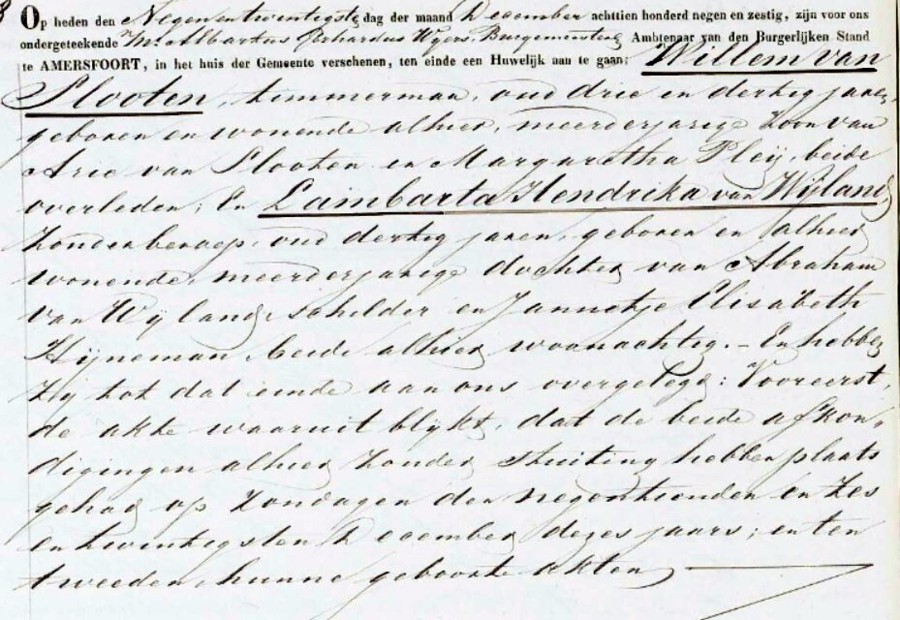 Op heden den Negenentwintigste dag der maand December achttien honderd negen en zestig, zijn voor ons
ondergeteekende Mr. Albartus Gerhardus Wijers, Burgemeester, Ambtenaar van den Burgerlijken Stand
te AMERSFOORT, in het huis der Gemeente verschenen, ten einde een Huwelijk aan te gaan; Willem van
Slooten, timmerman, oud drie en dertig jaren,
geboren en wonende alhier, meerderjarige zoon van
Arie van Slooten en Margaretha Pleij, beide
overleden; En Lambarta Hendrika van Wijland,
zonder beroep, oud dertig jaren, geboren en alhier
wonende, meerderjarige dochter van Abraham
van Wijland, schilder en Jannetje Elisabeth
Hijneman, beide alhier woonachtig. – En hebben
zij tot dat einde aan ons overgelegd: Vooreerst,
de akte waaruit blijkt, dat de beide afkon„
digingen alhier zonder stuiting hebben plaats
gehad op Zondagen den negentienden en zes
en twintigsten December dezes jaars; en ten
tweeden, hunne geboorte akten